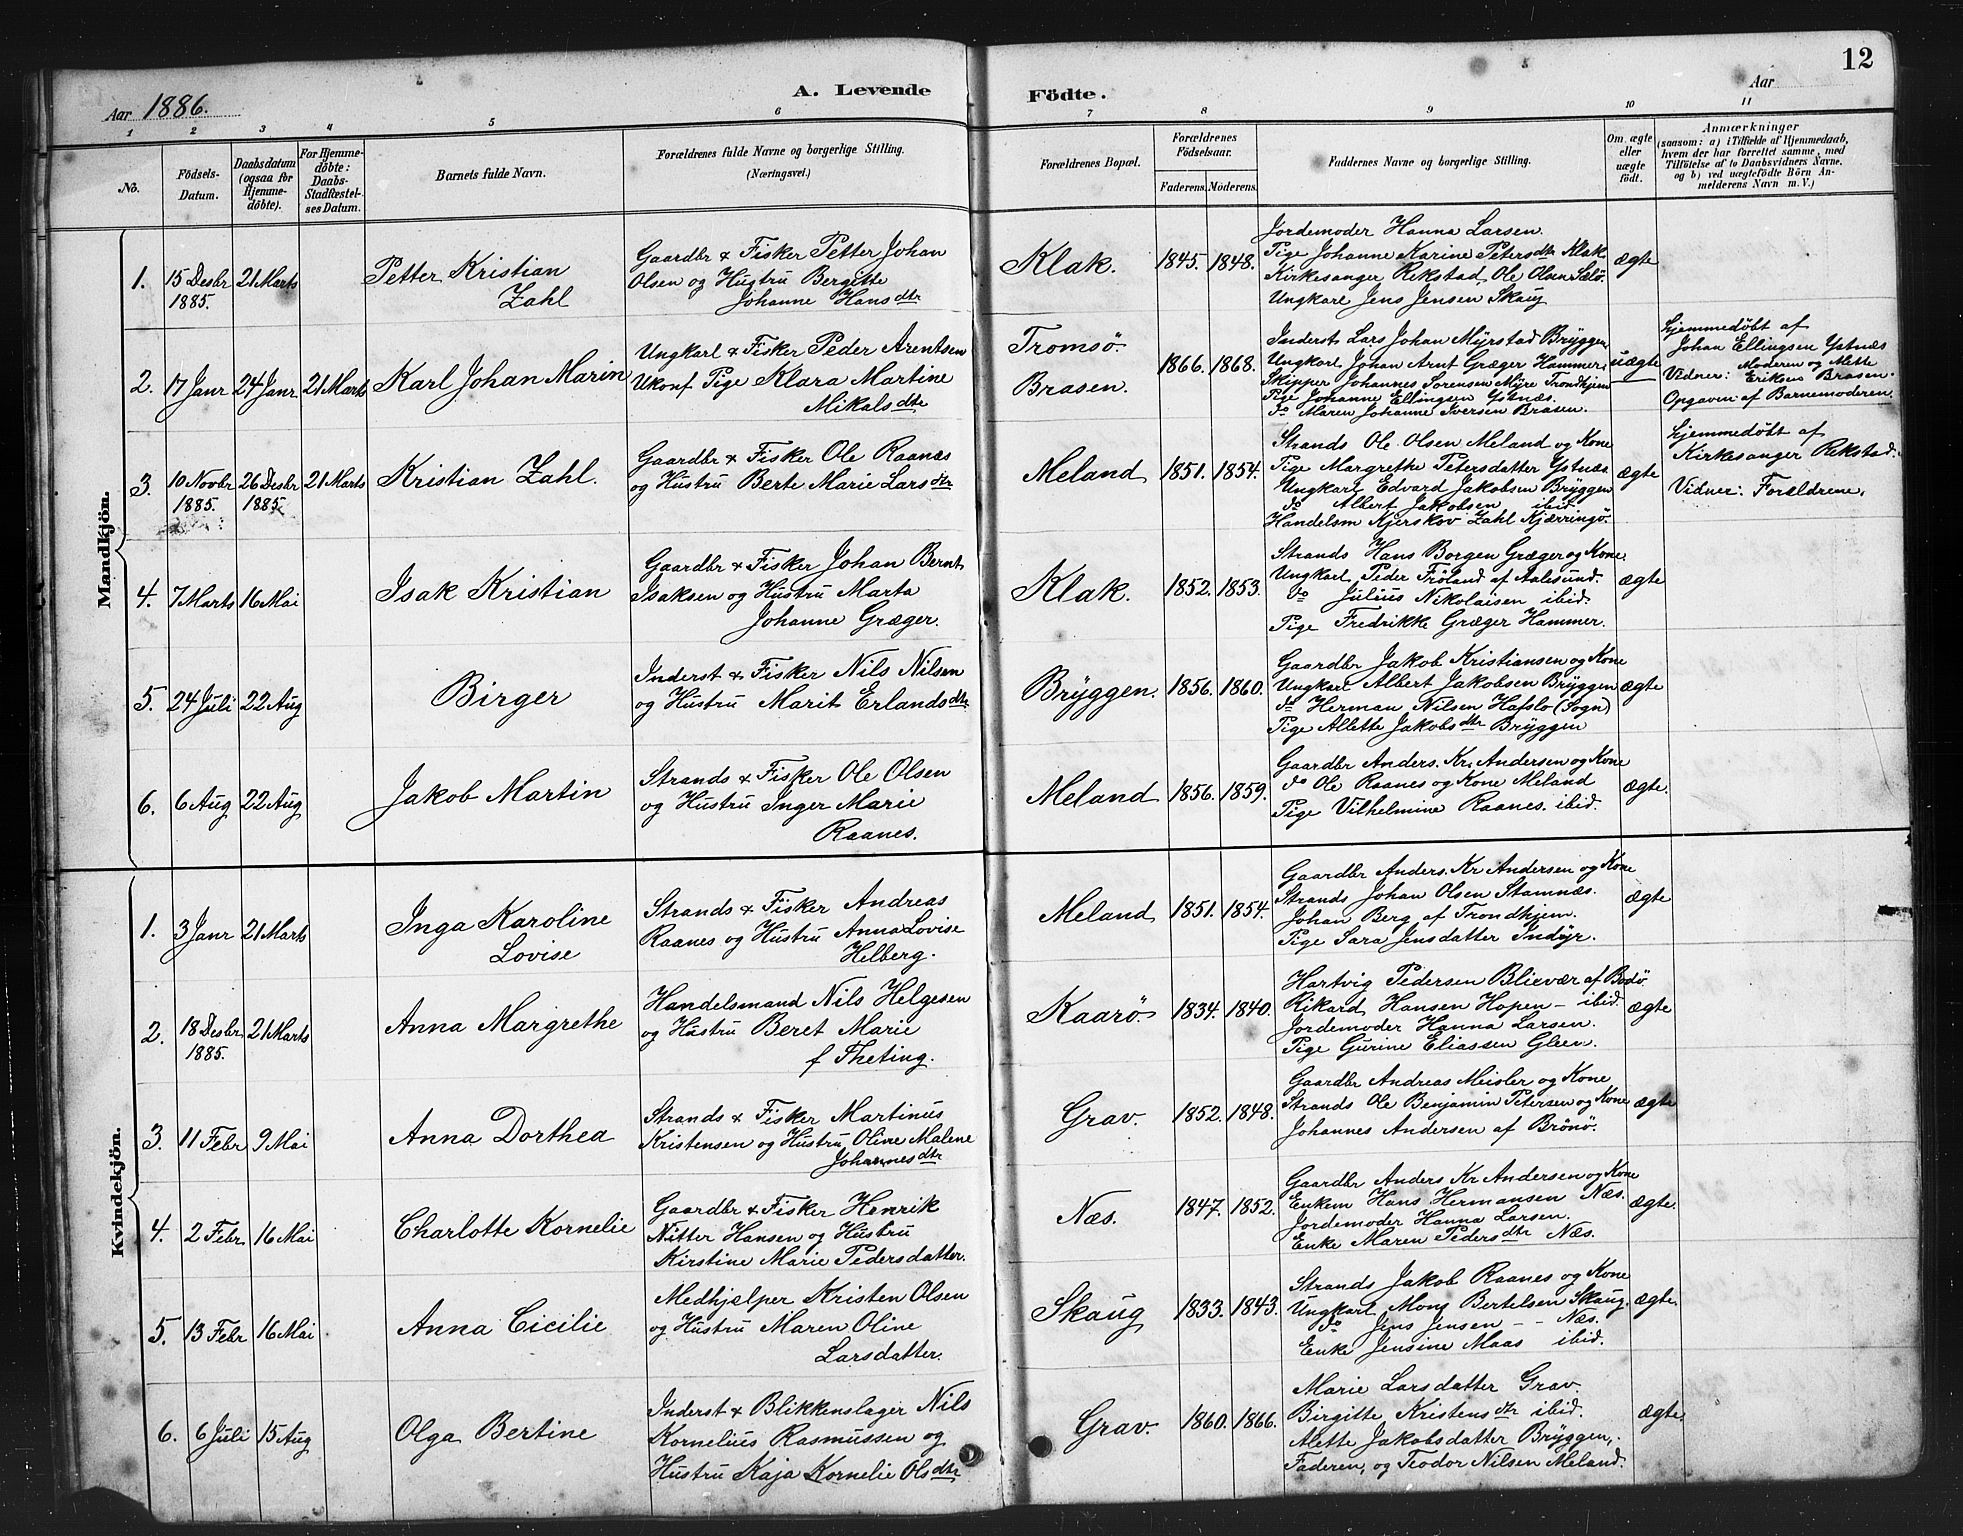 12
Aar 1886.
A. Levende Födte.
Aar
1 2 3 4 5 6 7 8 9 10 11
No.
Födsels-Datum.
Daabsdatum (ogsaa for Hjemmedöbte).
For Hjemmedöbte: Daabs-Stadfæstelses Datum.
Barnets fulde Navn.
Forældrenes fulde Navne og borgerlige Stilling.
(Næringsvei.)
Forældrenes Bopæl.
Forældrenes Födselsaar.
Faderens. Moderens.
Faddernes Navne og borgerlige Stilling.
Om ægte eller uægte födt.
Anmærkninger
(saasom: a) i Tilfælde af Hjemmedaab, hvem der har forrettet samme, med Tilföielse af to Daabsvidners Navne. og b) ved uægtefödte Börn Anmelderens Navn m. V.)
Mandkjön.
1. 15 Desbr 1885. 21 Marts
Petter Kristian
Zahl
Gaardbr & Fisker Petter Johan
Olsen og Hustru Bergitte
Johanne Hansdtr
Klak. 1845. 1848.
Jordemoder Hanna Larsen.
Pige Johanne Karine Petersdtr Klak.
Kirkesanger Rekstad, Ole Olsen Sælö.
Ungkarl Jens Jensen Skaug
ægte
2. 17 Janr 24 Janr 21 Marts
Karl Johan Marin
Ungkarl & Fisker Peder Arentsen
Ukonf. Pige Klara Martine
Mikalsdtr
Tromsö.
Brasen.
1866. 1868.
Inderst Lars Johan Myrstad Bryggen
Ungkarl Johan Arnt Græger Hammer
Skipper Johannes Sörensen Myre Trondhjem
Pige Johanne Ellingsen Ystnæs.
do Maren Johanne Iversen Brasen.
uægte
Hjemmedöbt af
Johan Ellingsen Ystnæs
Vidner: Moderen og Mette
Eriksen Brasen.
Opgaven: af Barnemoderen.
3. 10 Novbr 1885. 26 Desbr 1885. 21 Marts
Kristian Zahl.
Gaardbr & Fisker Ole Raanes
og Hustru Berte Marie Larsdtr
Meland 1851. 1854.
Strands. Ole Olsen Meland og Kone
Pige Margrethe Petersdatter Ystnæs
Ungkarl Edvard Jakobsen Bryggen
do Albert Jakobsen ibid.
Handelsm Kjerskov Zahl Kjærringö.
ægte
Hjemmedöbt af
Kirkesanger Rekstad.
Vidner: Forældrene.
4. 7 Marts 16 Mai
Isak Kristian
Gaardbr & Fisker Johan Bernt
Isaksen og Hustru Marta
Johanne Græger.
Klak. 1852. 1853.
Strands Hans Borgen Græger og Kone.
Ungkarl Peder Fröland af Aalesund.
do Julius Nikolaisen ibid.
Pige Fredrikke Græger Hammer.
ægte
5. 24 Juli 22 Aug
Birger
Inderst & Fisker Nils Nilsen
og Hustru Marit Erlandsdtr
Bryggen. 1856. 1860.
Gaardbr Jakob Kristiansen og Kone
Ungkarl Albert Jakobsen Bryggen
do Herman Nilsen Hafslo (Sogn)
Pige Allette Jakobsdtr Bryggen
ægte
6. 6 Aug 22 Aug
Jakob Martin
Strands & Fisker Ole Olsen
og Hustru Inger Marie
Raanes.
Meland 1856. 1859.
Gaardbr Anders. Kr. Andersen og Kone
do Ole Raanes og Kone Meland
Pige Vilhelmine Raanes. ibid.
ægte.
Kvindekjön.
1. 3 Janr 21 Marts
Inga Karoline
Lovise
Strands & Fisker Andreas
Raanes og Hustru Anna Lovise
Helberg.
Meland 1851. 1854.
Gaardbr Anders. Kr Andersen og Kone
Strands Johan Olsen Stamnæs.
Johan Berg af Trondhjem.
Pige Sara Jensdatter Indyr.
ægte
2. 18 Desbr 1885. 21 Marts
Anna Margrethe
Handelsmand Nils Helgesen
og Hustru Beret Marie
f Theting.
Kaarö 1834. 1840.
Hartvig Pedersen Blievær af Bodö.
Rikard Hansen Hopen - ibid.
Jordemoder Hanna Larsen.
Pige Gurine Eliassen Gleen.
ægte
3. 11 Febr 9 Mai
Anna Dorthea
Strands & Fisker Martinus
Kristensen og Hustru Oline Malene
Johannesdtr
Grav. 1852. 1848.
Gaardbr Andreas Meisler og Kone
Strands Ole Benjamin Petersen og Kone
Johannes Andersen af Brönö.
ægte
4. 2 Febr 16 Mai
Charlotte Kornelie
Gaardbr & Fisker Henrik
Nitter Hansen og Hustru
Kirstine Marie Pedersdatter.
Næs. 1847. 1852.
Gaardbr Anders Kr Andersen og Kone
Enkem Hans Hermansen Næs.
Jordemoder Hanna Larsen.
Enke Maren Pedersdtr Næs.
ægte.
5. 13 Febr 16 Mai
Anna Cicilie
Medhjælper Kristen Olsen
og Hustru Maren Oline
Larsdatter.
Skaug 1833. 1843.
Strands Jakob Raanes og Kone
Ungkarl Mons Bertelsen Skaug.
do Jens Jensen - - Næs.
Enke Jensine Maas ibid.
ægte.
6. 6 Juli 15 Aug
Olga Bertine
Inderst & Blikkenslager Nils
Kornelius Rasmussen og
Hustru Kaja Kornelie Olsdtr
Grav. 1860. 1866.
Marie Larsdatter Grav.
Birgitte Kristensdtr ibid.
Alette Jakobsdatter Bryggen,
Faderen, og Teodor Nilsen Meland.
ægte.